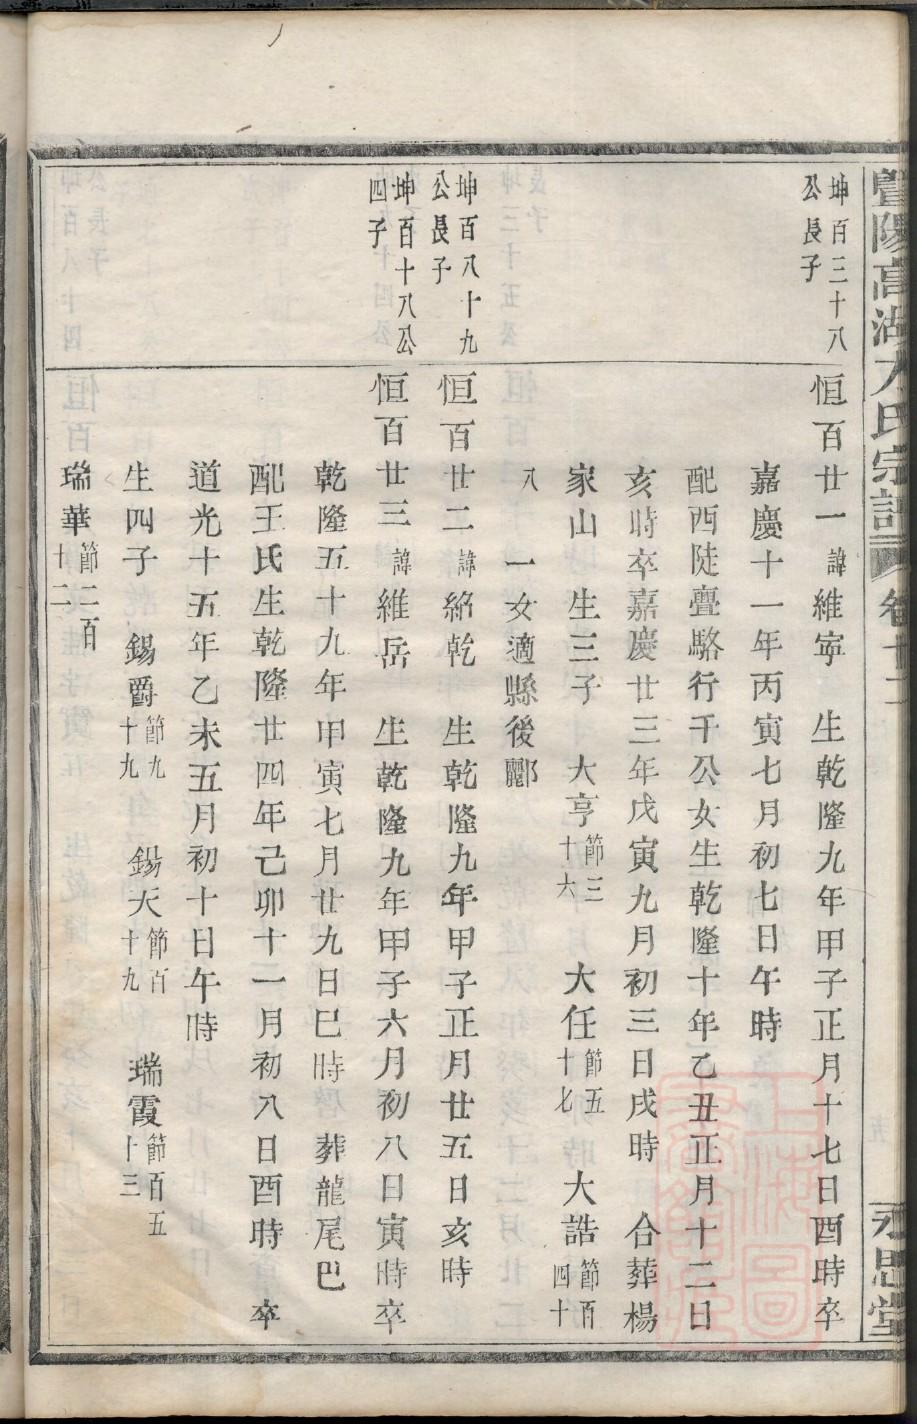 暨陽高湖方氏宗譜 卷廿二 永思堂
坤百三十八
公長子
恒百廿一 諱維寧 生乾隆九年甲子正月十七日酉時卒
嘉慶十一年丙寅七月初七日午時
配西陡亹駱行千公女生乾隆十年乙丑正月十二日
亥時卒嘉慶廿三年戊寅九月初三日戌時 合葬楊
家山 生三子 大亨 節三十六 大任 節五十七 大誥 節百四十
八 一女適縣後酈
坤百八十九
公長子
恒百廿二 諱紹乾 生乾隆九年甲子正月廿五日亥時
坤百十八公
四子
恒百廿三 諱維岳 生乾隆九年甲子六月初八日寅時卒
乾隆五十九年甲寅七月廿九日巳時 葬龍尾巴
配王氏生乾隆廿四年己卯十一月初八日酉時卒
道光十五年乙未五月初十日午時
生四子 錫爵 節九十九 錫天 節百十九 瑞霞 節百五十三
瑞華 節二百廿二